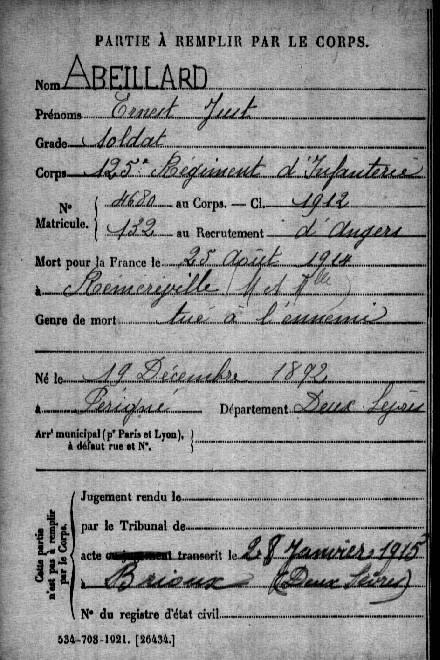 PARTIE À REMPLIR PAR LE CORPS.
Nom ABEILLARD
Prénoms Ernest Just
Grade soldat
Corps 125e Régiment d'Infanterie
N° Matricule. { 4680 au Corps. — Cl. 1912
132 au Recrutement d'Angers
Mort pour la France le 25 août 1914
à Réméréville (M et Mlle)
Genre de mort tué à l'ennemi
Né le 19 Décembre 1892
à Périgné Département Deux Sèvres
Arrt municipal (pr Paris et Lyon), à défaut rue et N°. }
Cette partie n'est pas à remplir par le Corps. {
Jugement rendu le
par le Tribunal de
acte transcrit le 28 Janvier 1915
à Brioux (Deux Sèvres)
N° du registre d'état civil
534-708-1921. [26434.]